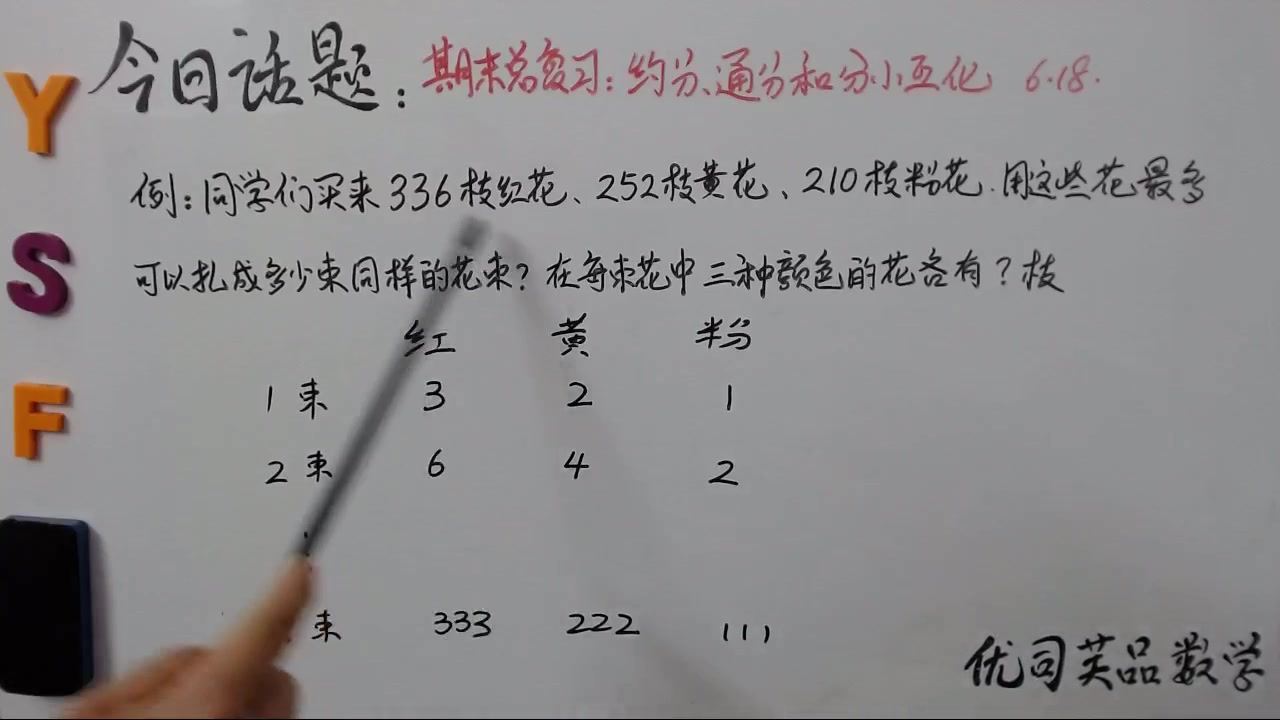 今日话题：期末总复习：约分、通分和分小互化 6.18.
例：同学们买来336枝红花、252枝黄花、210枝粉花.用这些花最多
可以扎成多少束同样的花束？在每束花中三种颜色的花各有？枝
红 黄 粉
1束 3 2 1
2束 6 4 2
束 333 222 111
优司芙品数学
Y
S
F